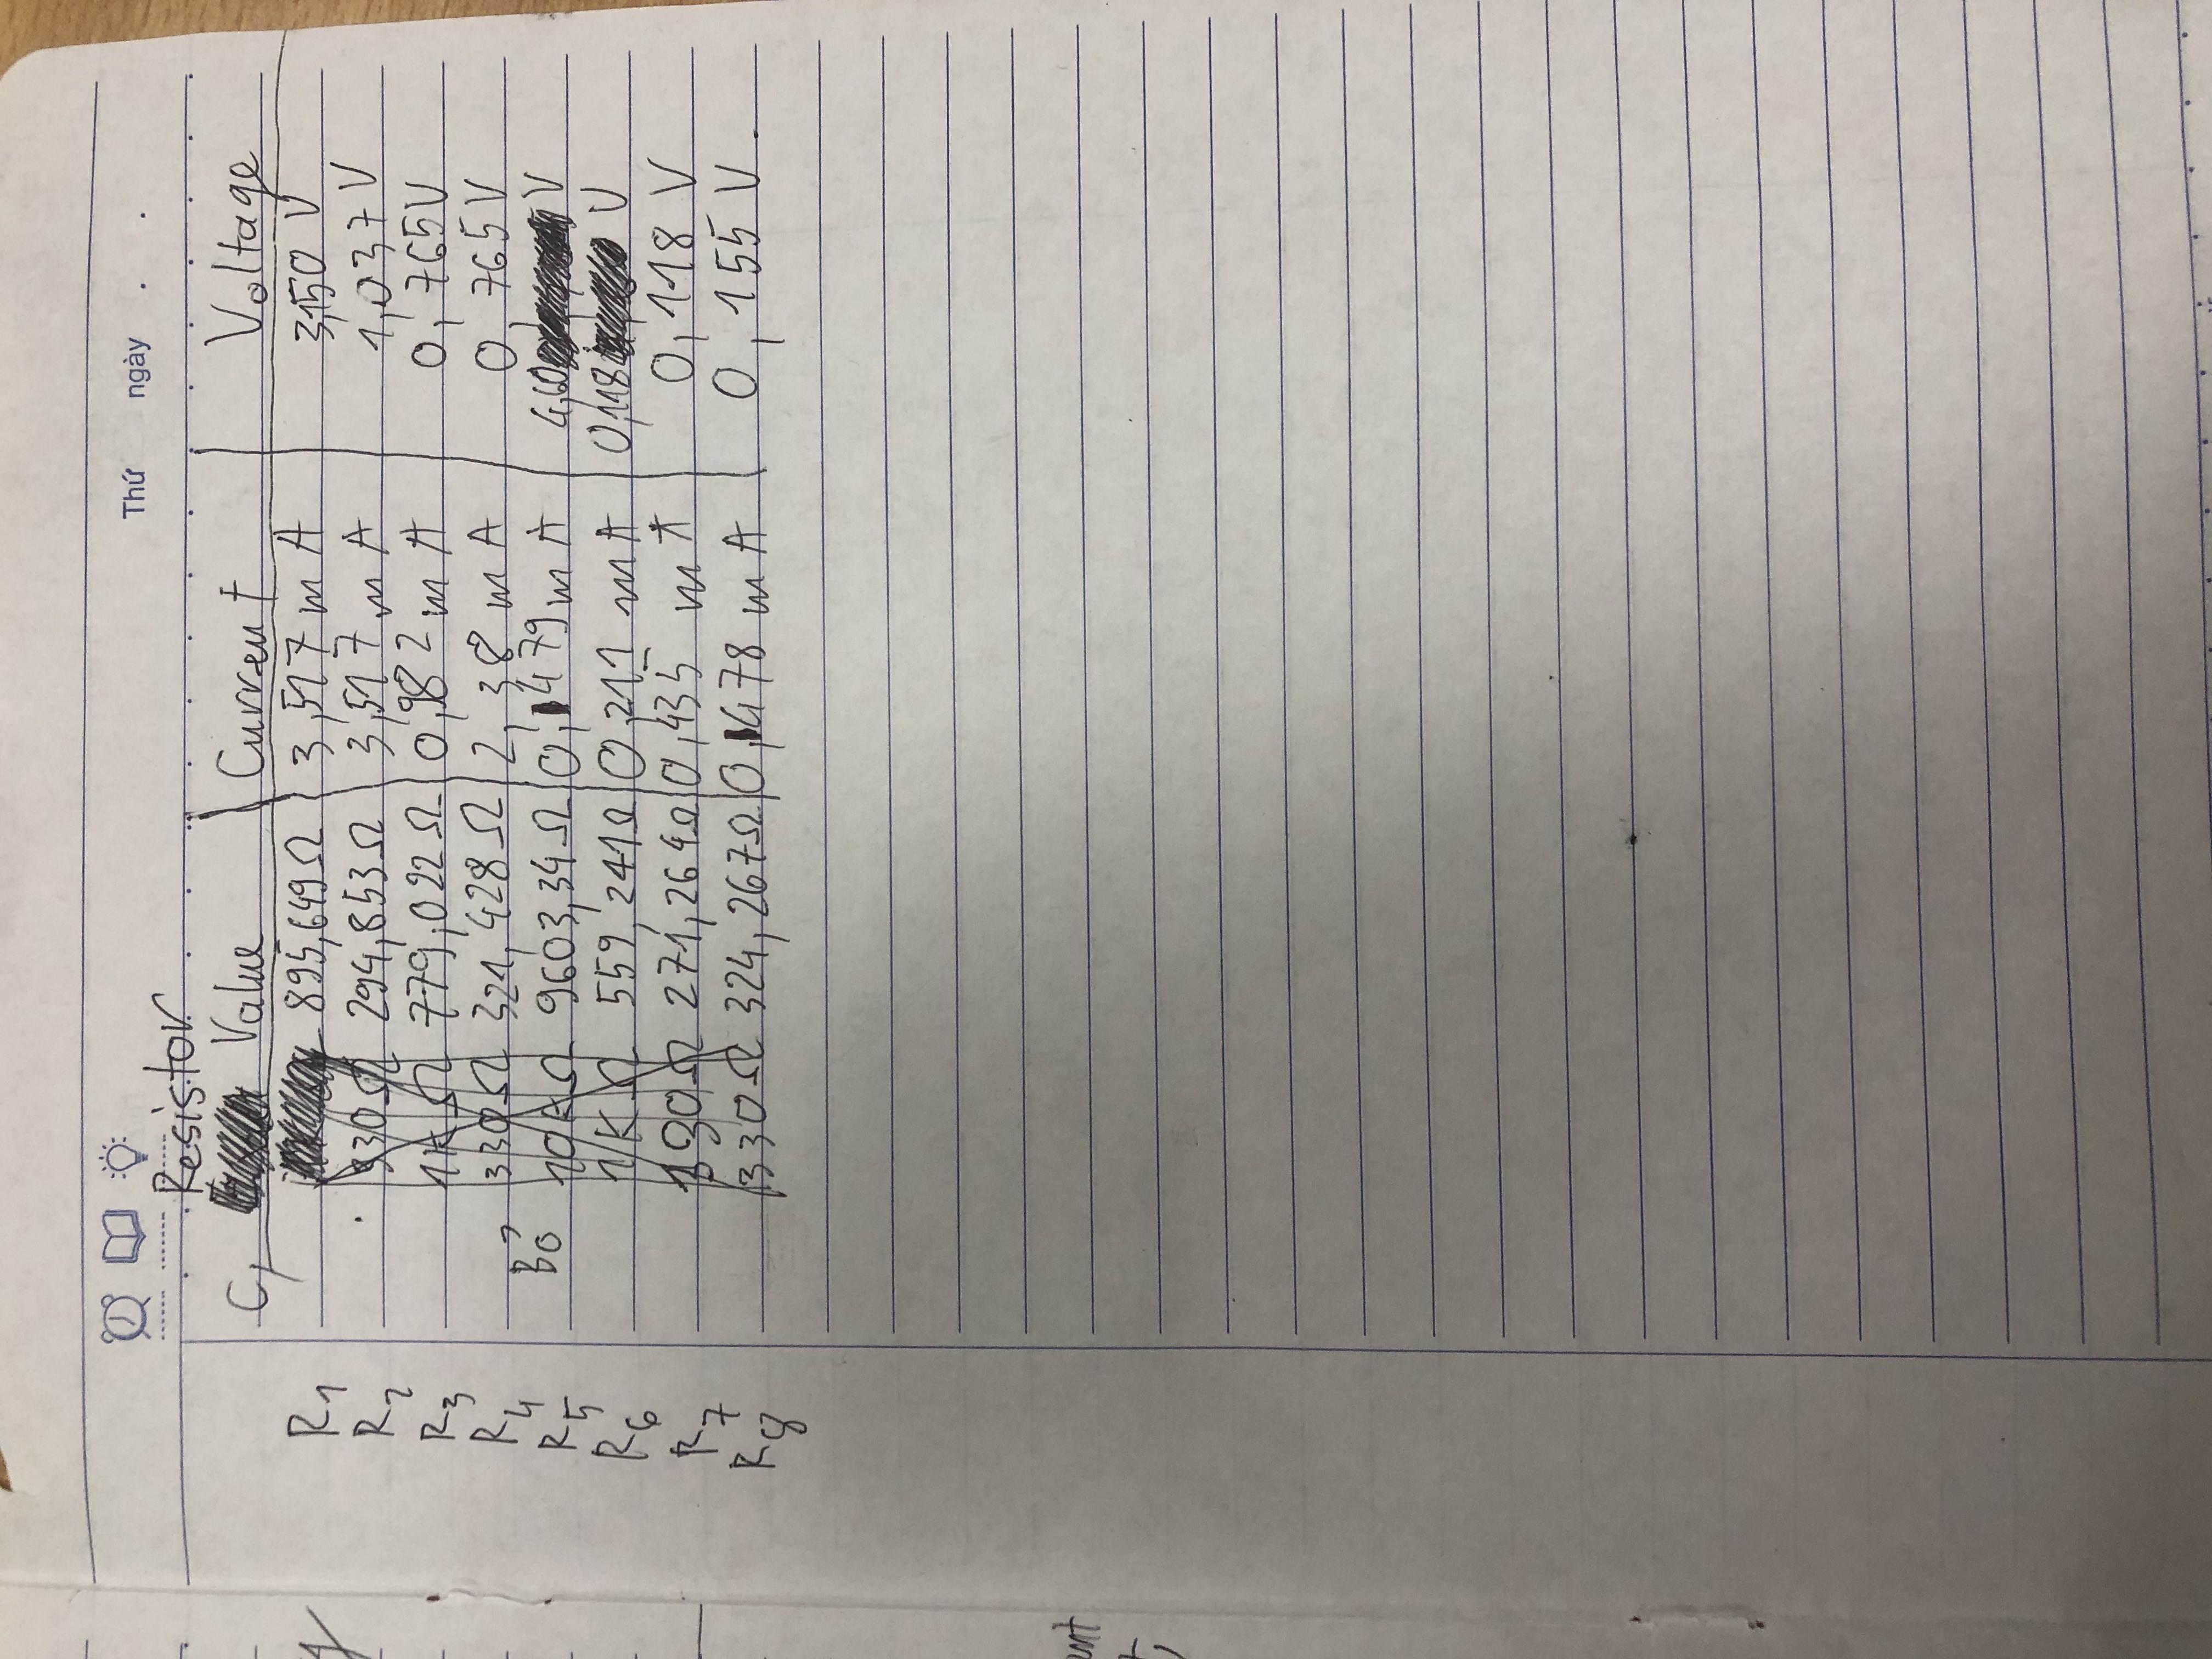 Thứ ngày . .
Resistor
C, Value Current Voltage
R1 895,649Ω 3,517 mA 3,150 V
R2 330Ω 294,853Ω 3,517 mA 1,037 V
R3 1KΩ 779,022Ω 0,982 mA 0,765V
R4 330Ω 321,428Ω 2,38 mA 0,765V
Bỏ
R5 10KΩ 9603,34Ω 0,479 mA 4,60 V
R6 1KΩ 559,241Ω 0,211 mA 0,118 V
R7 330Ω 271,264Ω 0,435 mA 0,118 V
R8 330Ω 324,267Ω 0,478 mA 0,155 V.